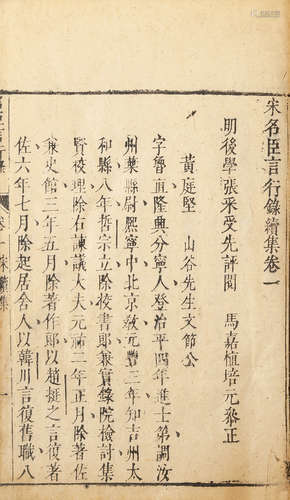 宋名臣言行錄續集卷一
明後學張采受先評閱 馬嘉植培元叅正
黃庭堅 山谷先生文節公
字魯直隆興分寧人登治平四年進士第調汝
州葉縣尉熙寧中北京教元豐三年知吉州太
和縣八年哲宗立除校書郎兼實錄院檢討集
賢校理除右諫議大夫元祐二年正月除著佐
兼史館三年五月除著作郎以趙挺之言復著
佐六年七月除起居舍人以韓川言復舊職八
宋續集